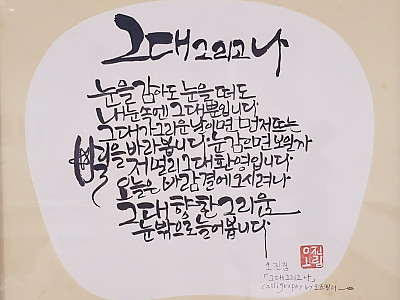 그대 그리고 나
눈을 감아도 눈을 떠도
내 눈 속엔 그대뿐입니다
그대가 그리운 날이면 먼저 뜨는
별을 바라봅니다. 눈 감으면 보일까
저 멀리 그대 환영입니다
오늘은 바람결에 오시려나
그대 향한 그리움
눈 밖으로 늘어 봅니다
오진림
「그대그리고나」
calligraphy by